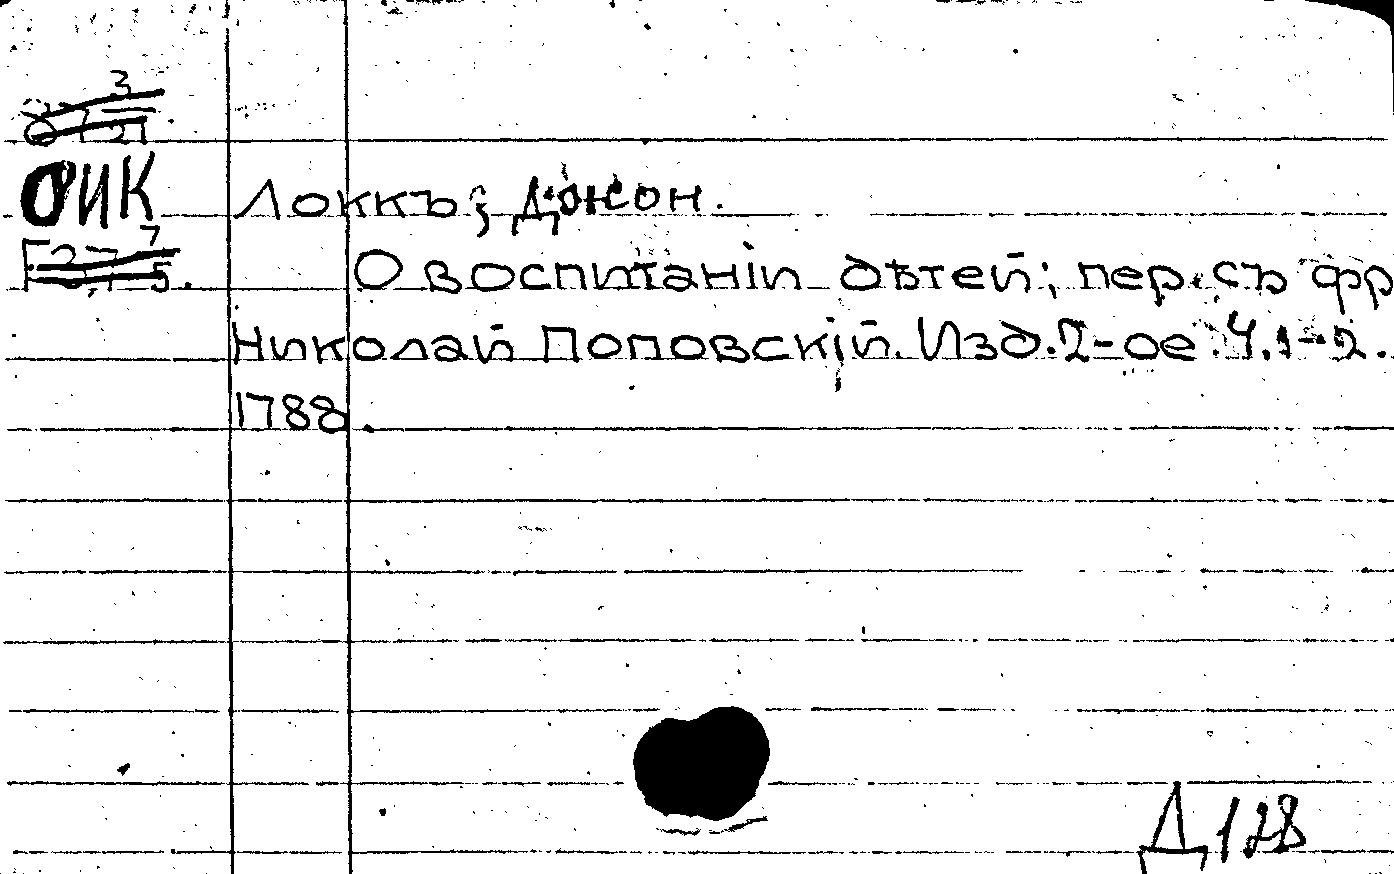 ОИК
Локкъ, Джон.
О воспитаніи дѣтей; пер. съ фр
Николай Поповскій. Изд. 2-ое. Ч. 1-2.
1788.
Д 128